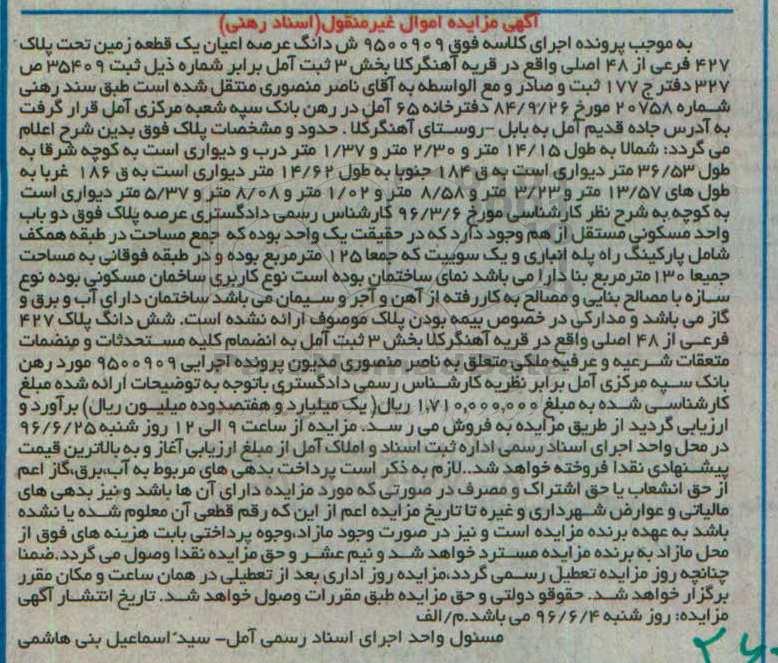 آگهی مزایده اموال غیرمنقول(اسناد رهنی)
به موجب پرونده اجرای کلاسه فوق ۹۵۰۰۹۰۹ ش دانگ عرصه اعیان یک قطعه زمین تحت پلاک
۴۲۷ فرعی از ۴۸ اصلی واقع در قریه آهنگرکلا بخش ۳ ثبت آمل برابر شماره ذیل ثبت ۳۵۴۰۹ ص
۳۲۷ دفتر ج ۱۷۷ ثبت و صادر و مع الواسطه به آقای ناصر منصوری منتقل شده است طبق سند رهنی
شماره ۲۰۷۵۸ مورخ ۸۴/۹/۲۶ دفترخانه ۶۵ آمل در رهن بانک سپه شعبه مرکزی آمل قرار گرفت
به آدرس جاده قدیم آمل به بابل -روستای آهنگرکلا . حدود و مشخصات پلاک فوق بدین شرح اعلام
می گردد: شمالا به طول ۱۴/۱۵ متر و ۲/۳۰ متر و ۱/۳۷ متر درب و دیواری است به کوچه شرقا به
طول ۳۶/۵۳ متر دیواری است به ق ۱۸۴ جنوبا به طول ۱۴/۶۲ متر دیواری است به ق ۱۸۶ غربا به
طول های ۱۳/۵۷ متر و ۳/۲۳ متر و ۸/۵۸ متر و ۱/۰۲ متر و ۸/۰۸ متر و ۵/۳۷ متر دیواری است
به کوچه.به شرح نظر کارشناسی مورخ ۹۶/۳/۶ کارشناس رسمی دادگستری عرصه پلاک فوق دو باب
واحد مسکونی مستقل از هم وجود دارد که در حقیقت یک واحد بوده که جمع مساحت در طبقه همکف
شامل پارکینگ راه پله انباری و یک سوییت که جمعا ۱۲۵ مترمربع بوده و در طبقه فوقانی به مساحت
جمیعا ۱۳۰مترمربع بنا دارا می باشد نمای ساختمان بوده است نوع کاربری ساخمان مسکونی بوده نوع
سازه با مصالح بنایی و مصالح به کاررفته از آهن و آجر و سیمان می باشد ساختمان دارای آب و برق و
گاز می باشد و مدارکی در خصوص بیمه بودن پلاک موصوف ارائه نشده است. شش دانگ پلاک ۴۲۷
فرعی از ۴۸ اصلی واقع در قریه آهنگرکلا بخش ۳ ثبت آمل به انضمام کلیه مستحدثات و منضمات
متعقات شرعیه و عرفیه ملکی متعلق به ناصر منصوری مدیون پرونده اجرایی ۹۵۰۰۹۰۹ مورد رهن
بانک سپه مرکزی آمل برابر نظریه کارشناس رسمی دادگستری باتوجه به توضیحات ارائه شده مبلغ
کارشناسی شده به مبلغ ۱,۷۱۰,۰۰۰,۰۰۰ ریال( یک میلیارد و هفتصدوده میلیون ریال) برآورد و
ارزیابی گردید از طریق مزایده به فروش می ر سد. مزایده از ساعت ۹ الی ۱۲ روز شنبه ۹۶/۶/۲۵
در محل واحد اجرای اسناد رسمی اداره ثبت اسناد و املاک آمل از مبلغ ارزیابی آغاز و به بالاترین قیمت
پیشنهادی نقدا فروخته خواهد شد..لازم به ذکر است پرداخت بدهی های مربوط به آب،برق،گاز اعم
از حق انشعاب یا حق اشتراک و مصرف در صورتی که مورد مزایده دارای آن ها باشد و نیز بدهی های
مالیاتی و عوارض شهرداری و غیره تا تاریخ مزایده اعم از این که رقم قطعی آن معلوم شده یا نشده
باشد به عهده برنده مزایده است و نیز در صورت وجود مازاد،وجوه پرداختی بابت هزینه های فوق از
محل مازاد به برنده مزایده مسترد خواهد شد و نیم عشر و حق مزایده نقدا وصول می گردد.ضمنا
چنانچه روز مزایده تعطیل رسمی گردد،مزایده روز اداری بعد از تعطیلی در همان ساعت و مکان مقرر
برگزار خواهد شد. حقوقو دولتی و حق مزایده طبق مقررات وصول خواهد شد. تاریخ انتشار آگهی
مزایده: روز شنبه ۹۶/۶/۴ می باشد.م/الف
مسئول واحد اجرای اسناد رسمی آمل- سید اسماعیل بنی هاشمی